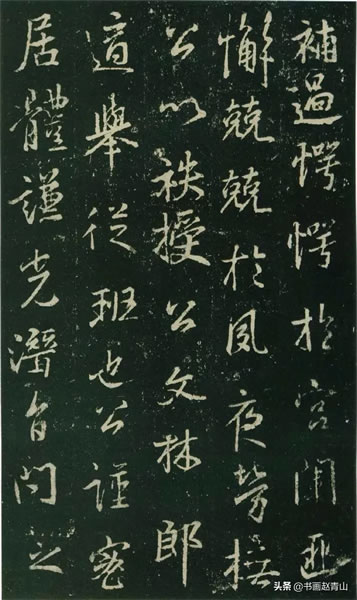 補過愕愕於宮闈匪
懈兢兢於夙夜勞
公以袟授公文林郎
舉從班也公謹密
居體謙光潛旨問之
头条 @书画赵青山